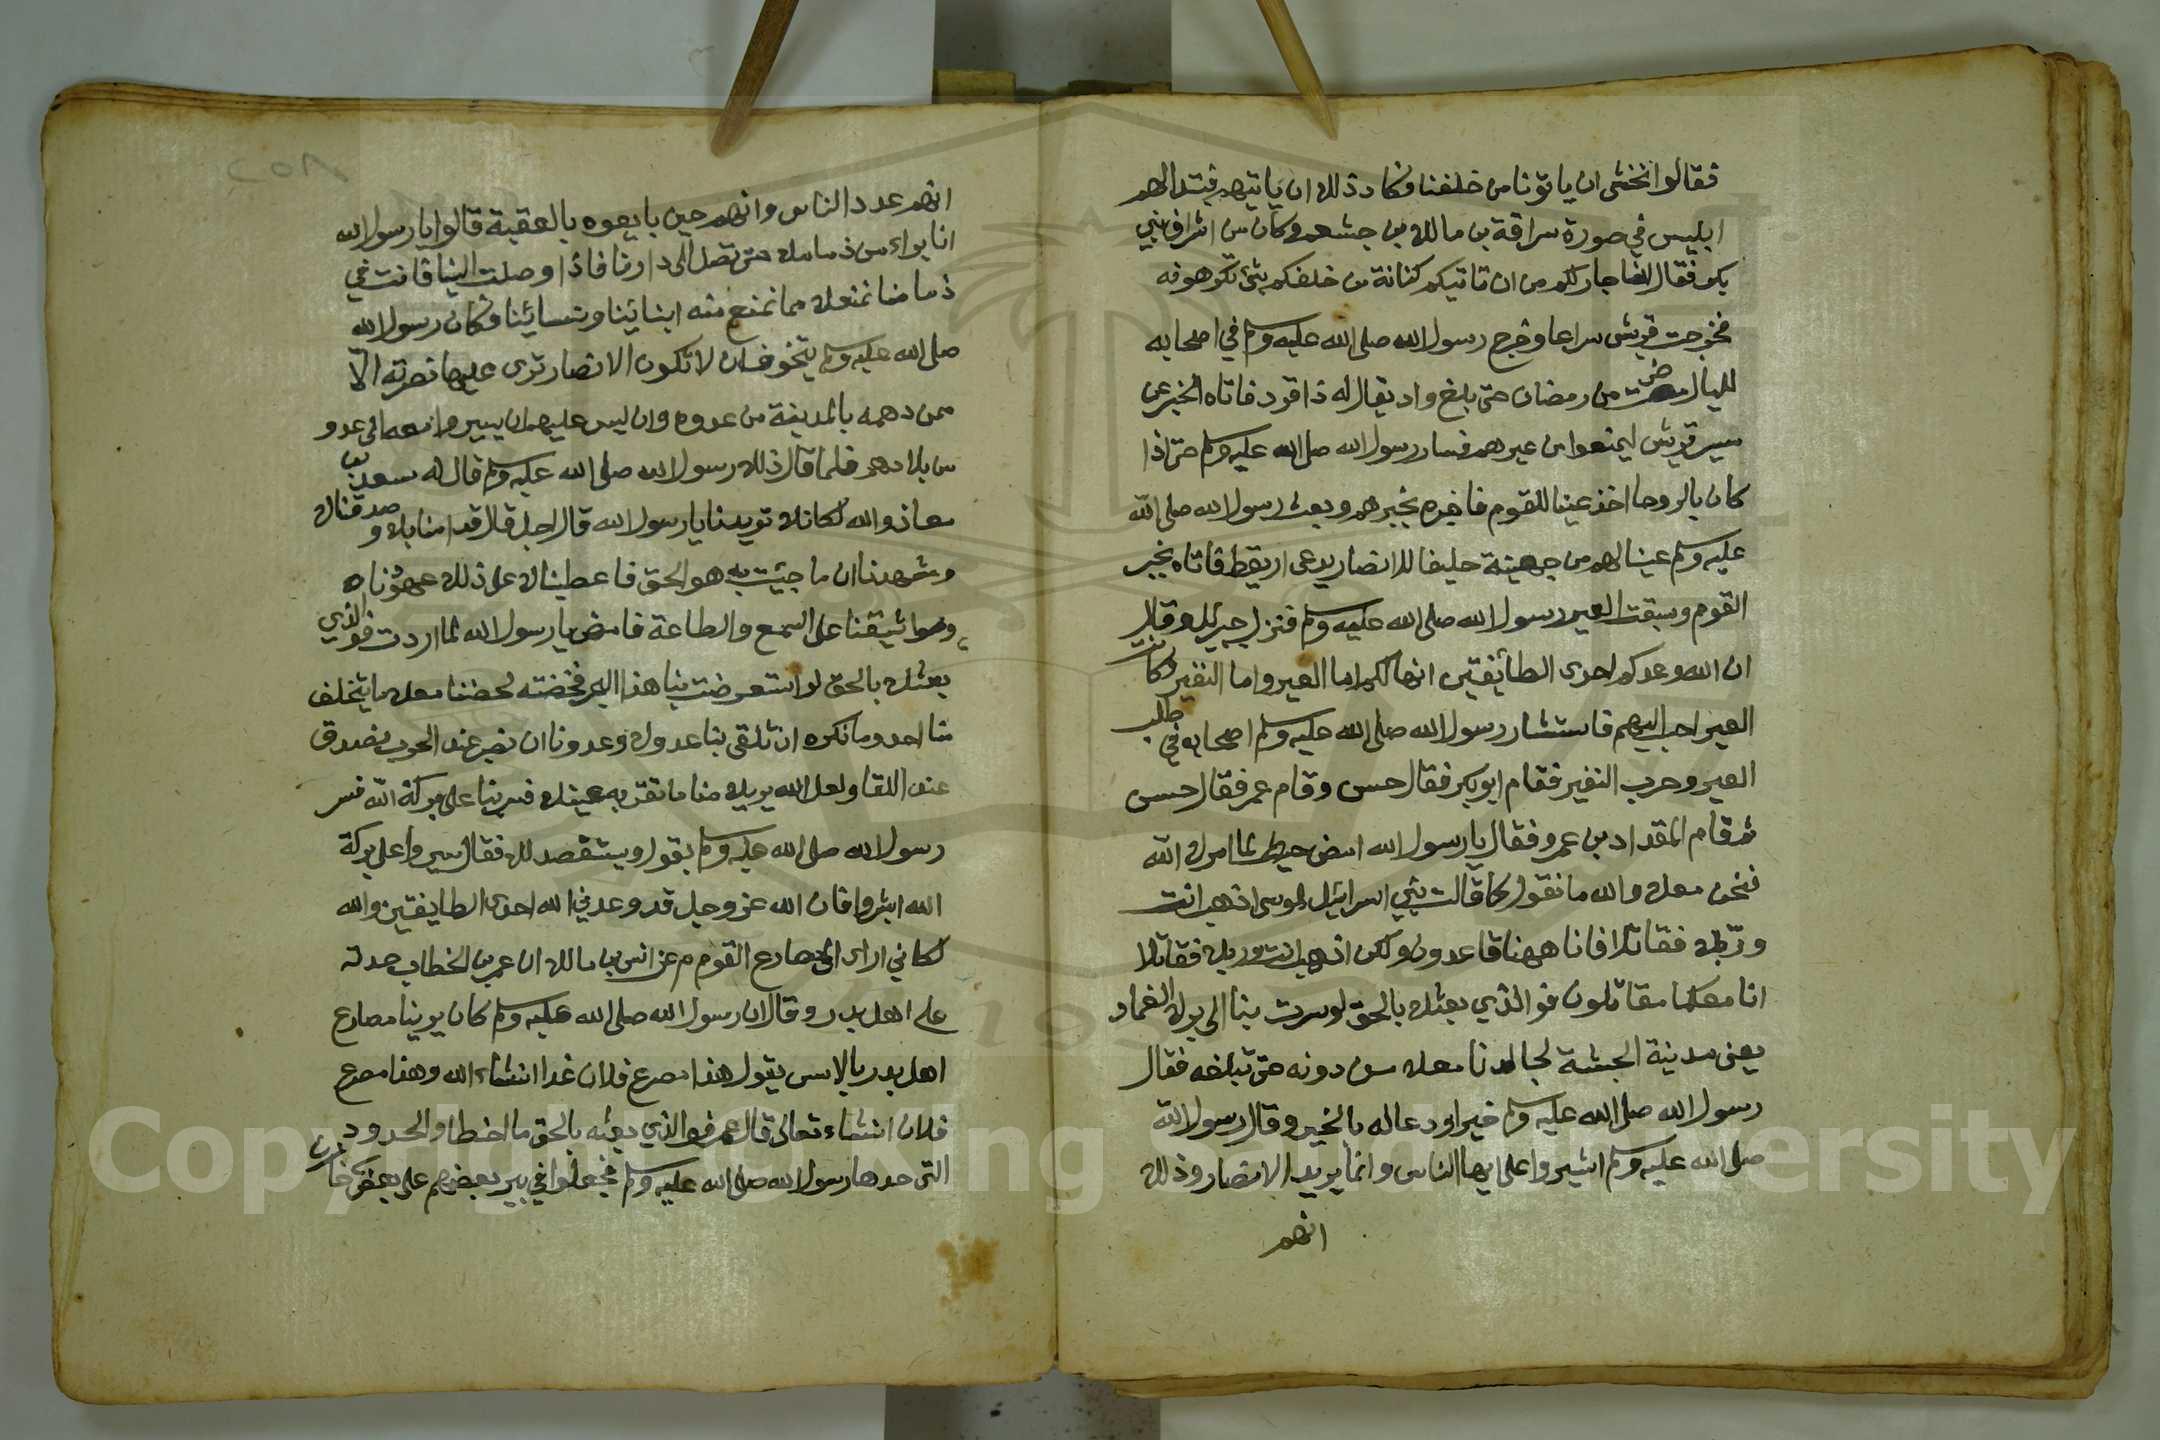 فقالوا نخشى ان ياتونا من خلفنا وكاد ذلك ان ياتيهم فتبدا لهم
ابليس في صورة سراقة بن مالك بن جشعم وكان من اشراف بني
بكر فقال انا جار لكم من ان تاتيكم كنانة من خلفكم بشئ تكرهونه
فخرجت قريش سراعا وخرج رسول الله صلى الله عليه وسلم في اصحابه
لليال مضت من رمضان حتى بلغ واد يقال له ذا قرد فاتاه الخبر عن
سير قريش ليمنعوا عن عيرهم فسار رسول الله صلى الله عليه وسلم حتى اذا
كان بالروحا اخذ عينا للقوم فاخبره بخبرهم وبعث رسول الله صلى الله
عليه وسلم عينا لهم من جهينة حليفا للانصار يدعى اريقط فاتاه بخبر
القوم وسبقت العير رسول الله صلى الله عليه وسلم فنزل جبرئيل وقال
ان الله وعدكم احدى الطائفتين انها لكم اما العير واما النفير وكانت
العير احب اليهم فاستشار رسول الله صلى الله عليه وسلم اصحابه في طلب
العير وحرب النفير فقام ابو بكر فقال حسن وقام عمر فقال حسن
ثم قام المقداد بن عمرو فقال يا رسول الله امض لما امرك الله
فنحن معك والله ما نقول كما قالت بني اسرائيل لموسى اذهب انت
وربك فقاتلا فانا ههنا قاعدون ولكن اذهب انت وربك فقاتلا
انا معكما مقاتلون فوالذي بعثك بالحق لو سرت بنا الى برك الغماد
يعني مدينة الحبشة لجالدنا معك من دونه حتى تبلغه فقال
رسول الله صلى الله عليه وسلم خيرا ودعا له بالخير وقال رسول الله
صلى الله عليه وسلم اشيروا علي ايها الناس وانما يريد الانصار وذلك
انهم
انهم عدد الناس وانهم حين بايعوه بالعقبة قالوا يا رسول الله
انا براء من ذمامك حتى تصل الى دارنا فاذا وصلت الينا فانت في
ذمامنا نمنعك مما نمنع منه ابنائنا ونسائنا وكان رسول الله
صلى الله عليه وسلم يتخوف ان لا تكون الانصار ترى عليها نصرته الا
ممن دهمه بالمدينة من عدوه وان ليس عليهم ان يسيروا معه الى عدو
من بلادهم فلما قال ذلك رسول الله صلى الله عليه وسلم قال له سعد بن
معاذ والله لكانك تريدنا يا رسول الله قال اجل قال قد امنا بك وصدقناك
وشهدنا ان ما جئت به هو الحق فاعطيناك على ذلك عهودنا
ومواثيقنا على السمع والطاعة فامض يا رسول الله لما اردت فوالذي
بعثك بالحق لو استعرضت بنا هذا البحر فخضته لخضنا معك ما يتخلف
منا احد وما نكره ان تلقى بنا عدوك وعدونا ان نصبر عند الحرب نصدق
عند اللقا ولعل الله يريك منا ما تقر به عينك فسر بنا على بركة الله فسر
رسول الله صلى الله عليه وسلم بقول فقال سيروا على بركة
الله ابشروا فان الله عز وجل قد وعدني الله احدى الطايفتين والله
لكاني ارى الى مصارع القوم م عن انس بن مالك ان عمر بن الخطاب حدثه
على اهل بدر وقال ان رسول الله صلى الله عليه وسلم كان يرينا مصارع
اهل بدر بالامس يقول هذا مصرع فلان غدا انشاء الله وهذا مصرع
فلان انشاء تعالى قال عمر فوالذي بعثه بالحق ما اخطاوا الحدود
التى حدها رسول الله صلى الله عليه وسلم فجعلوا في بير بعضهم على بعض